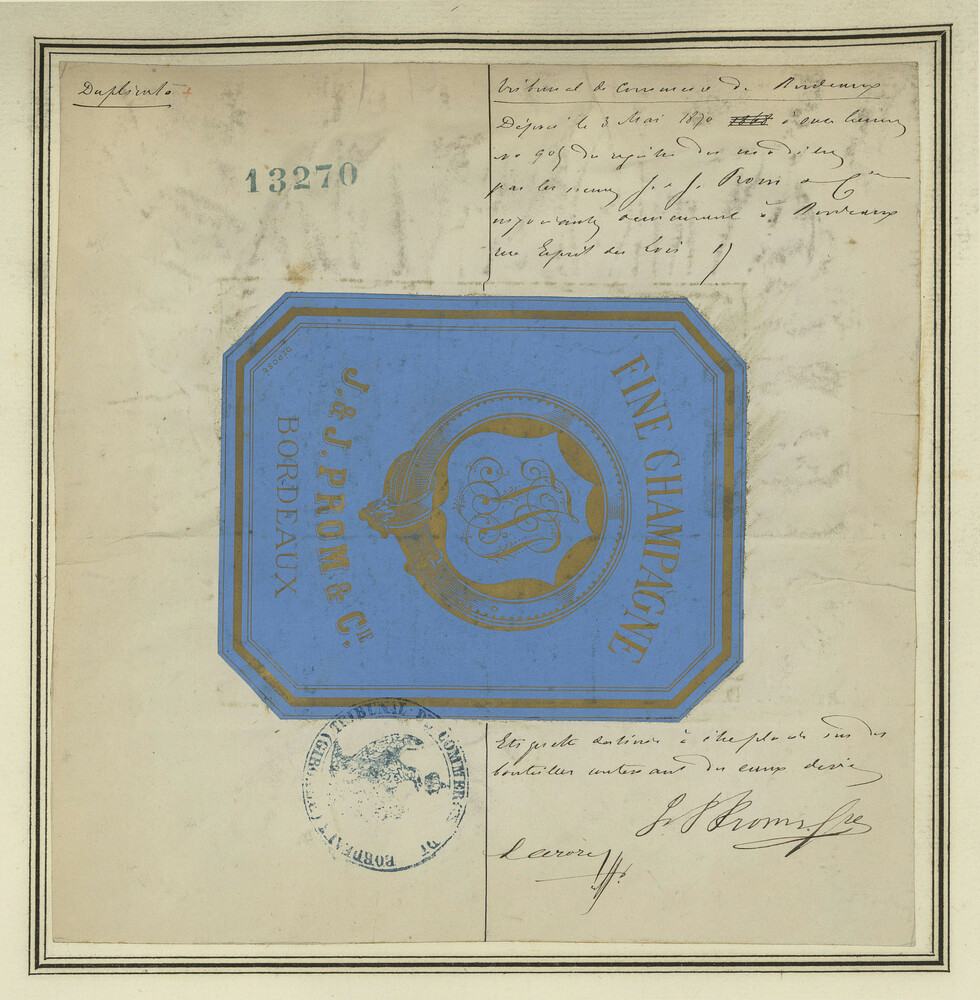 Duplicata
13270
Tribunal de Commerce de Bordeaux
Déposé le 3 Mai 1870 à onze heures
No 905 du registre des modèles
par les sieurs J. & J. Prom & Cie
négociants demeurant à Bordeaux
rue Esprit des Lois
FINE CHAMPAGNE
J. & J. PROM & CIE.
BORDEAUX
DÉPOSÉ
TRIBUNAL DE COMMERCE DE BORDEAUX
Etiquette destinée à être placée sur des
bouteilles contenant des eaux de vie
J & J Prom & Cie